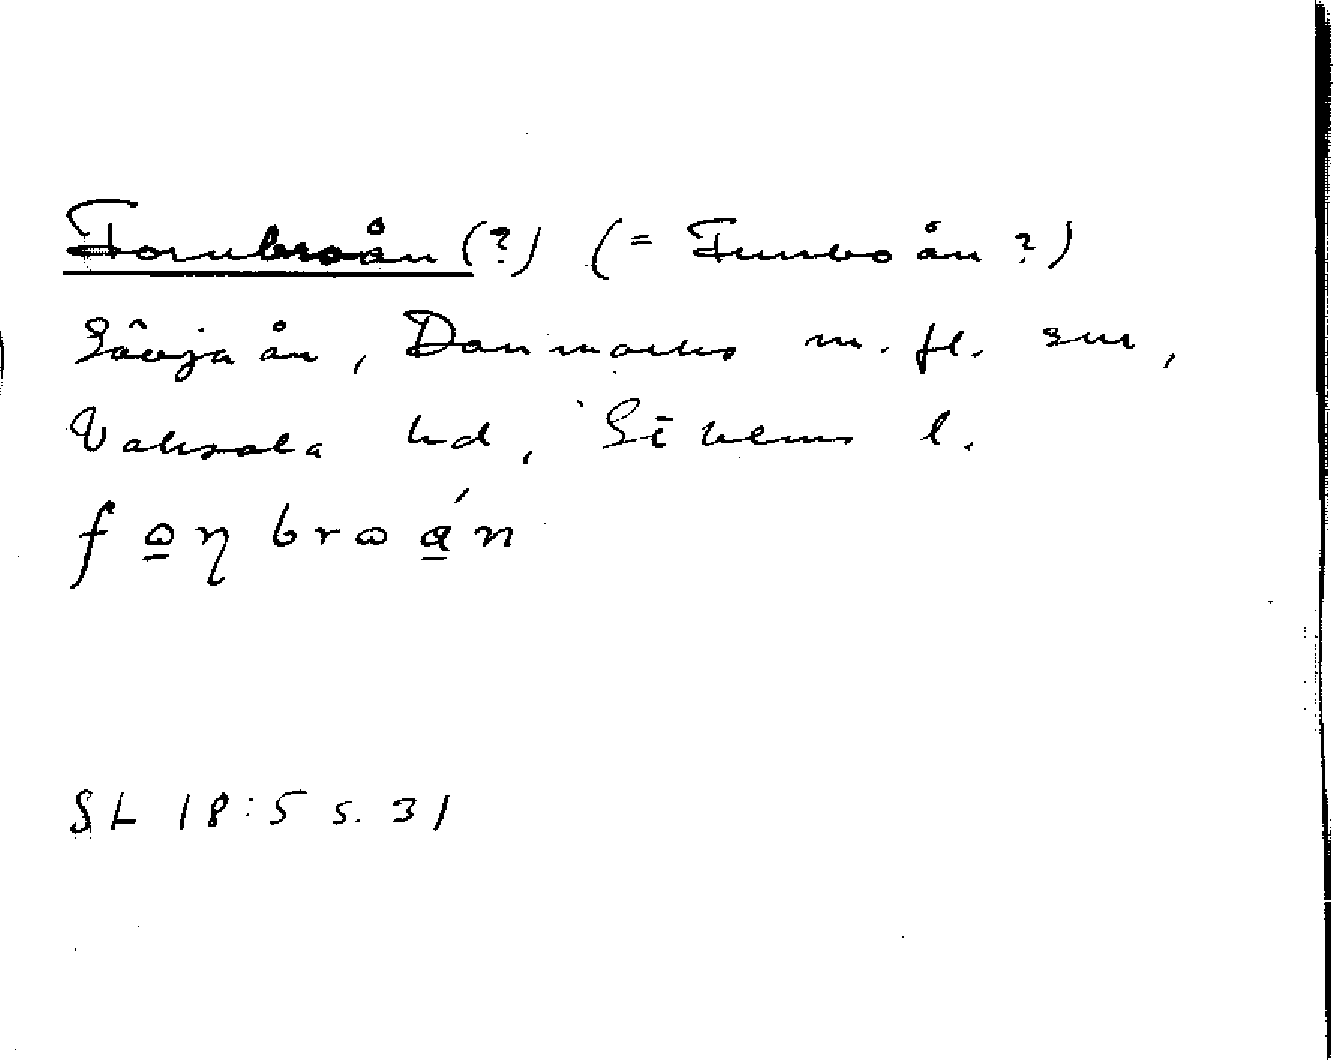 Fornbroån (?) (= Funboån ?)
Sävjaån, Danmarks m. fl. snr,
Vaksala hd, Sthlms l.
fo̲ŋbroá̲n
SL 18:5 s. 31